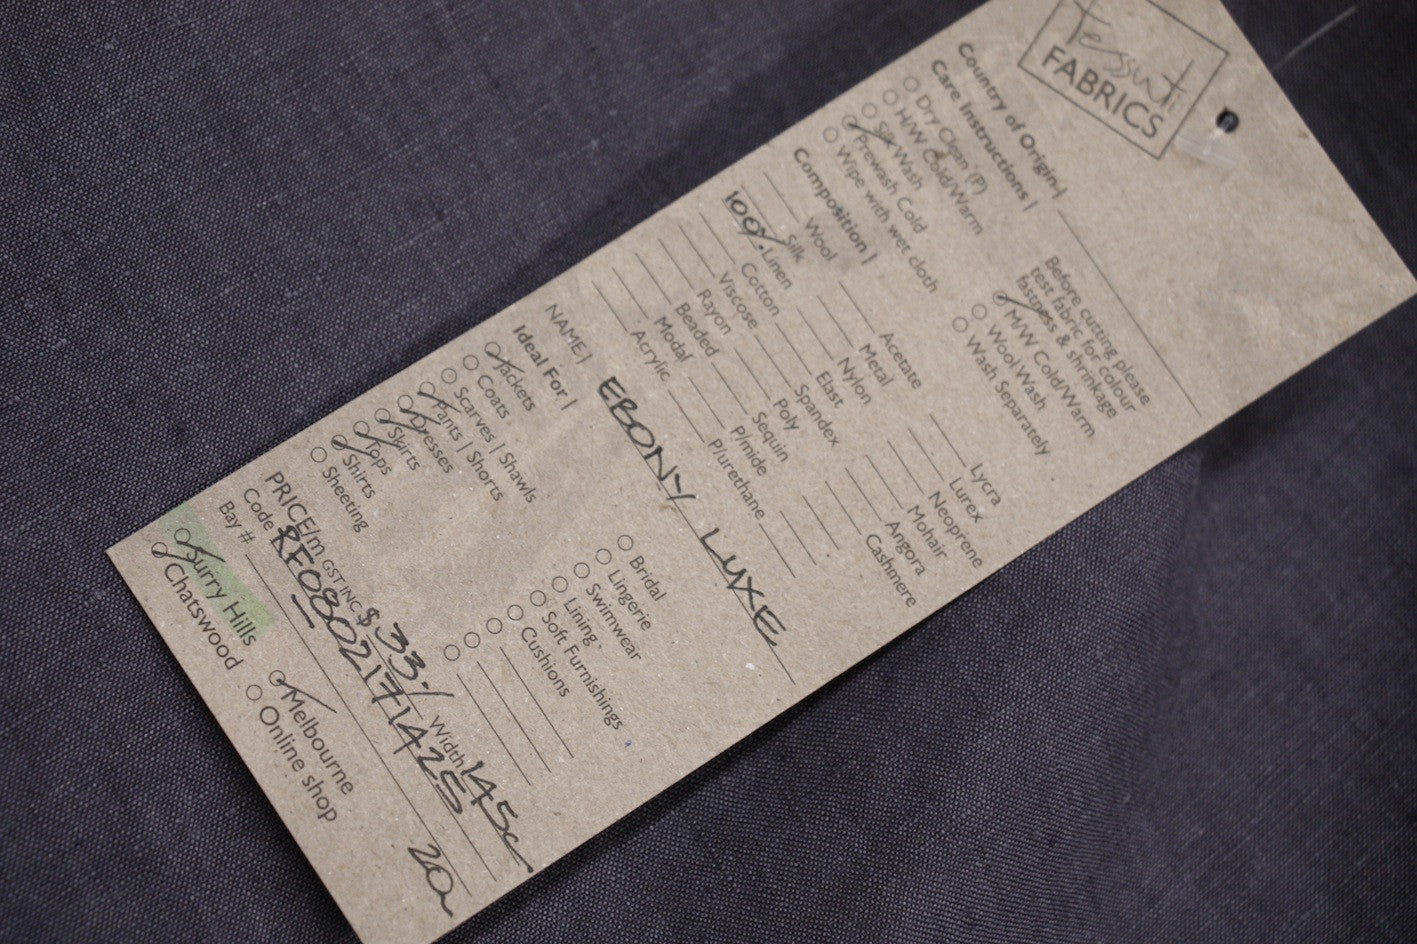 Tessuti
FABRICS
Country of Origin |
Care Instructions |
Dry Clean (P)
H/W Cold/Warm
Silk Wash
Prewash Cold
Wipe with wet cloth
Before cutting please
test fabric for colour
fastness & shrinkage
M/W Cold/Warm
Wool Wash
Wash Separately
Composition |
Wool
Silk
100% Linen
Cotton
Viscose
Rayon
Beaded
Modal
Acrylic
Acetate
Metal
Nylon
Elast
Spandex
Poly
Sequin
P/mide
P/urethane
Lycra
Lurex
Neoprene
Mohair
Angora
Cashmere
NAME | EBONY LUXE
Ideal For |
Jackets
Coats
Scarves | Shawls
Pants | Shorts
Dresses
Skirts
Tops
Shirts
Sheeting
Bridal
Lingerie
Swimwear
Lining
Soft Furnishings
Cushions
PRICE/m GST INC $33./ Width 145c
Code RF0802171425
Bay #
Surry Hills
Chatswood
Melbourne
Online shop